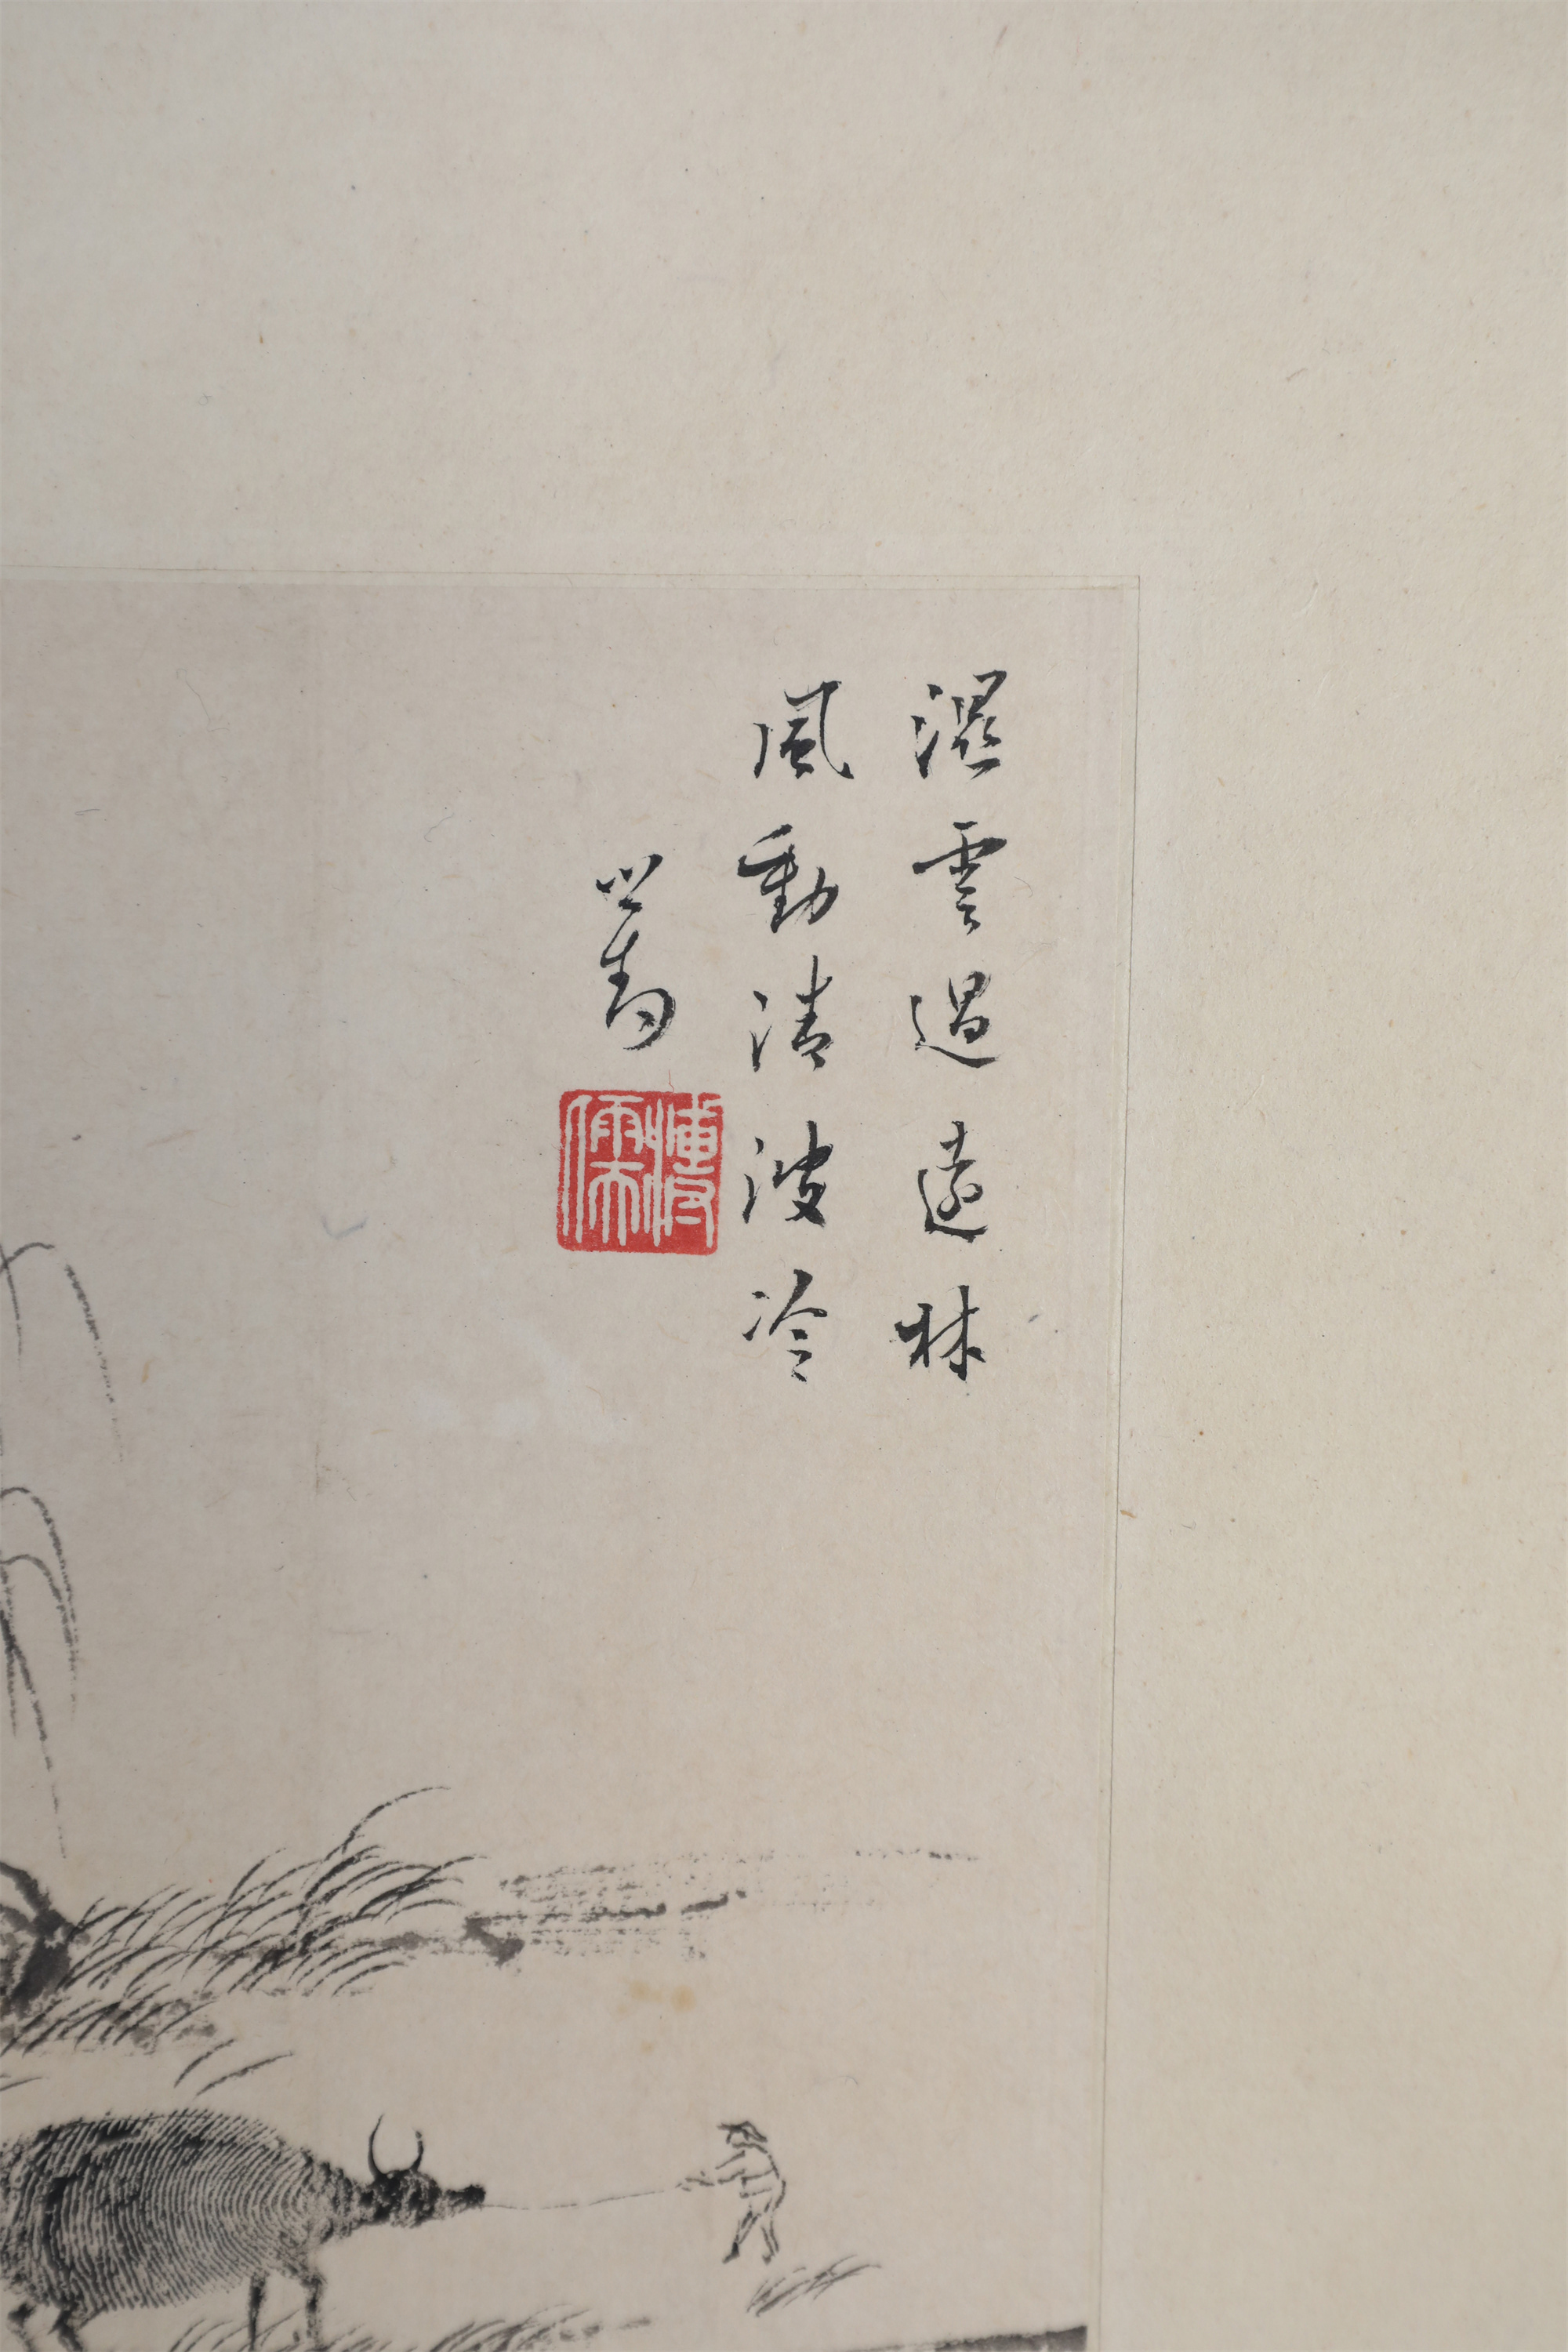 濕雲過遠林
風動清波冷
心畬
溥儒